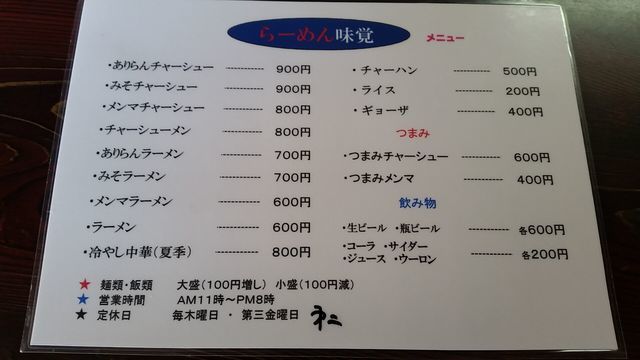 らーめん味覚
メニュー
・ありらんチャーシュー ---------- 900円
・みそチャーシュー ---------- 900円
・メンマチャーシュー ---------- 800円
・チャーシューメン ---------- 800円
・ありらんラーメン ---------- 700円
・みそラーメン ---------- 700円
・メンマラーメン ---------- 600円
・ラーメン ---------- 600円
・冷やし中華（夏季） ---------- 800円
・チャーハン ---------- 500円
・ライス ---------- 200円
・ギョーザ ---------- 400円
つまみ
・つまみチャーシュー ---------- 600円
・つまみメンマ ---------- 400円
飲み物
・生ビール ・瓶ビール ---------- 各600円
・コーラ ・サイダー
・ジュース ・ウーロン ---------- 各200円
★ 麺類・飯類 大盛（100円増し） 小盛（100円減）
★ 営業時間 AM11時～PM8時
★ 定休日 毎木曜日 ・ 第三金曜日